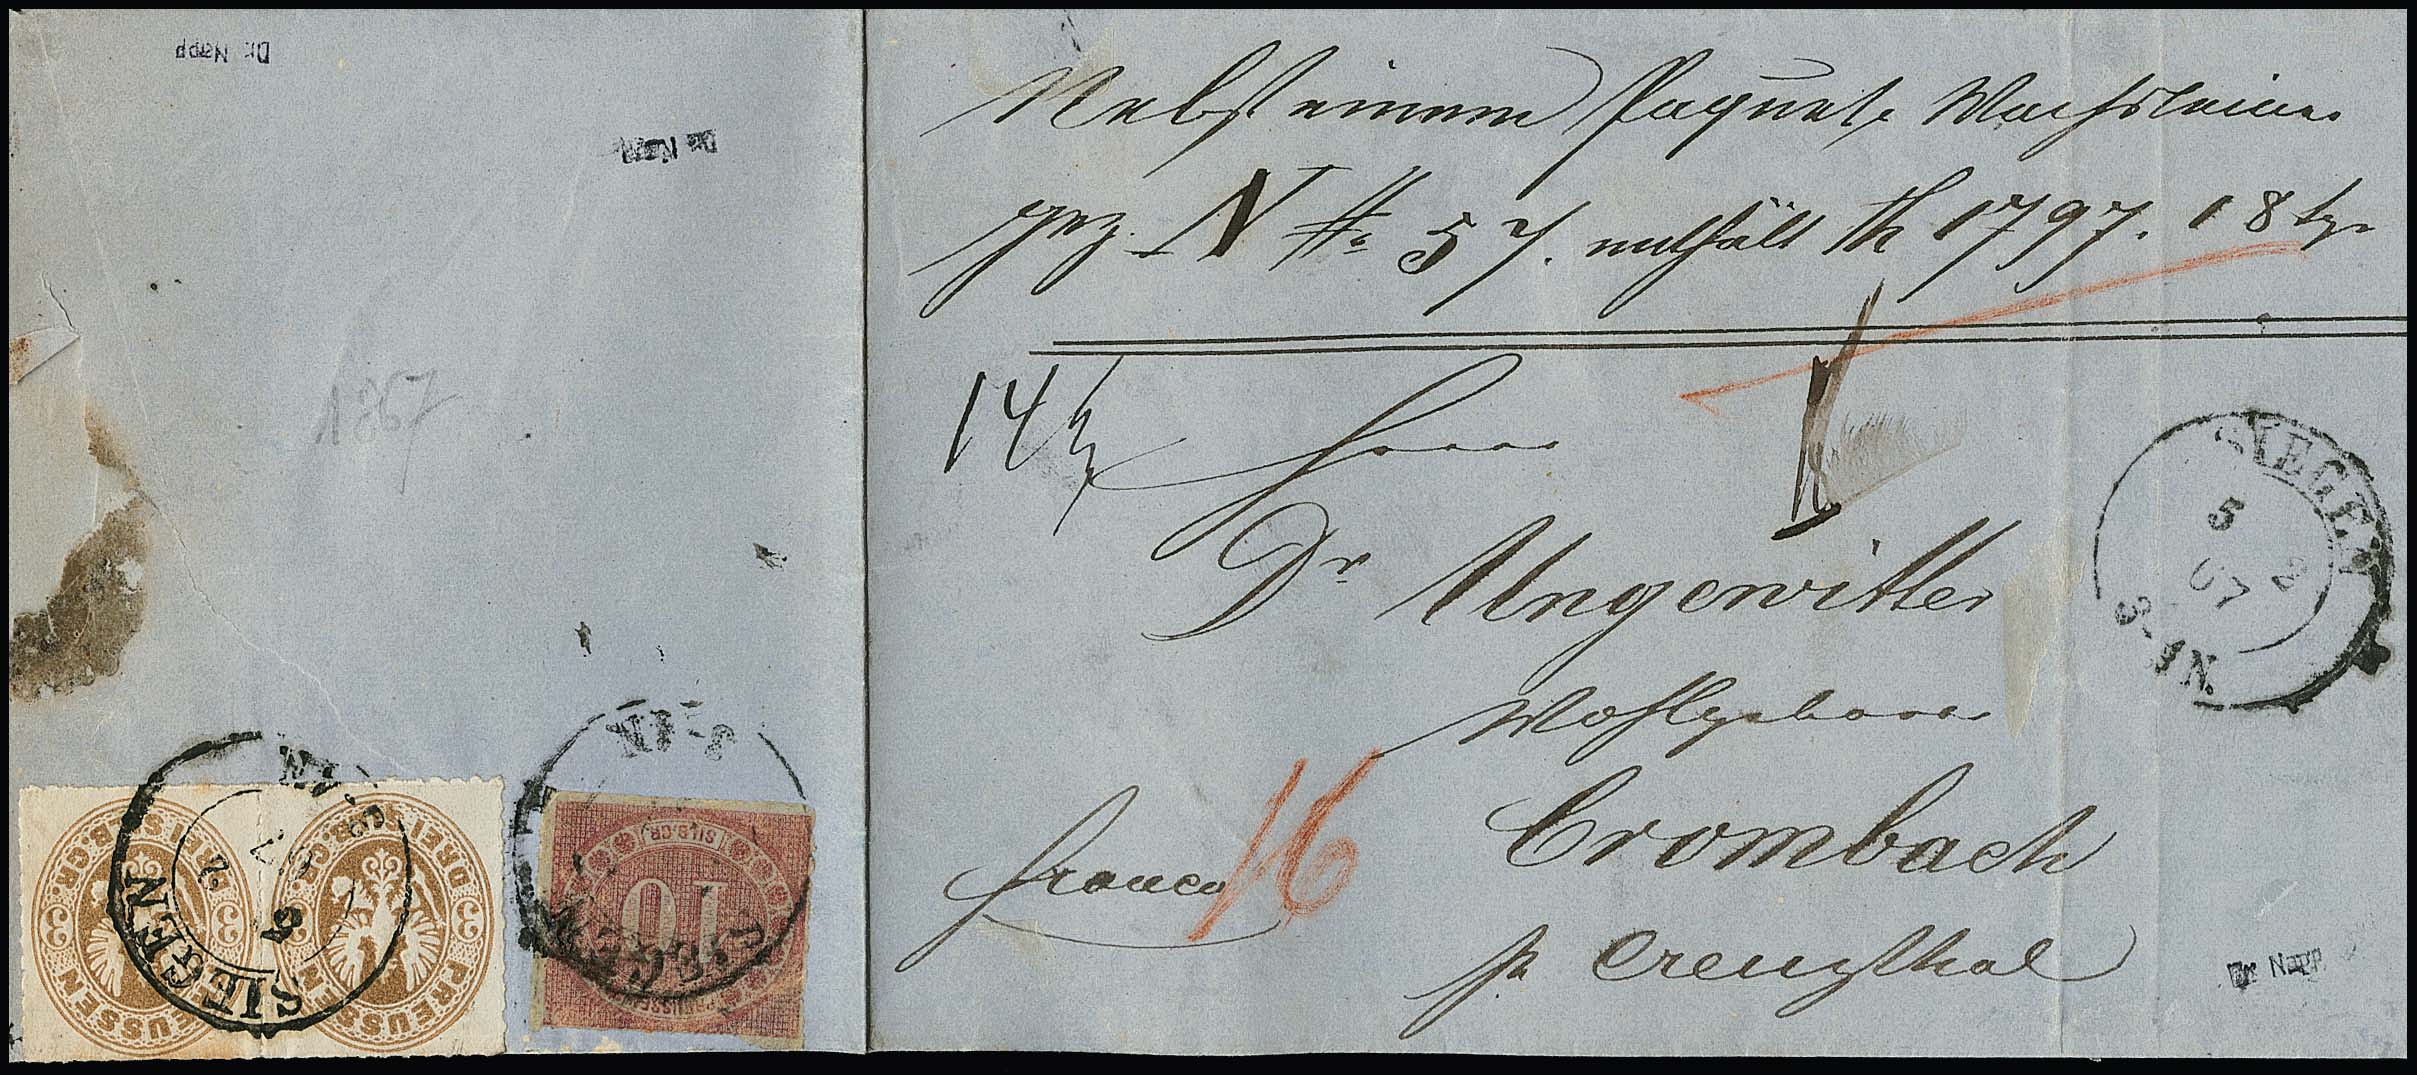 Dr. Napp
Dr. Napp
1867
Nebst einem Paquet, Wachsleinen
gez. N # 57. enthält th 1797. 18 sgr
14
Herrn
Dr Ungewitter
Wohlgeboren
Crombach
p. Creuzthal
franco
16
SIEGEN
5 2
67
3-4N.
SIEGEN
5 2
67
SIEGEN
DREI SILB.GR.
PREUSSEN
3
3
DREI SILB.GR.
PREUSSEN
3
3
10
SILB.GR.
PREUSSEN
Dr. Napp